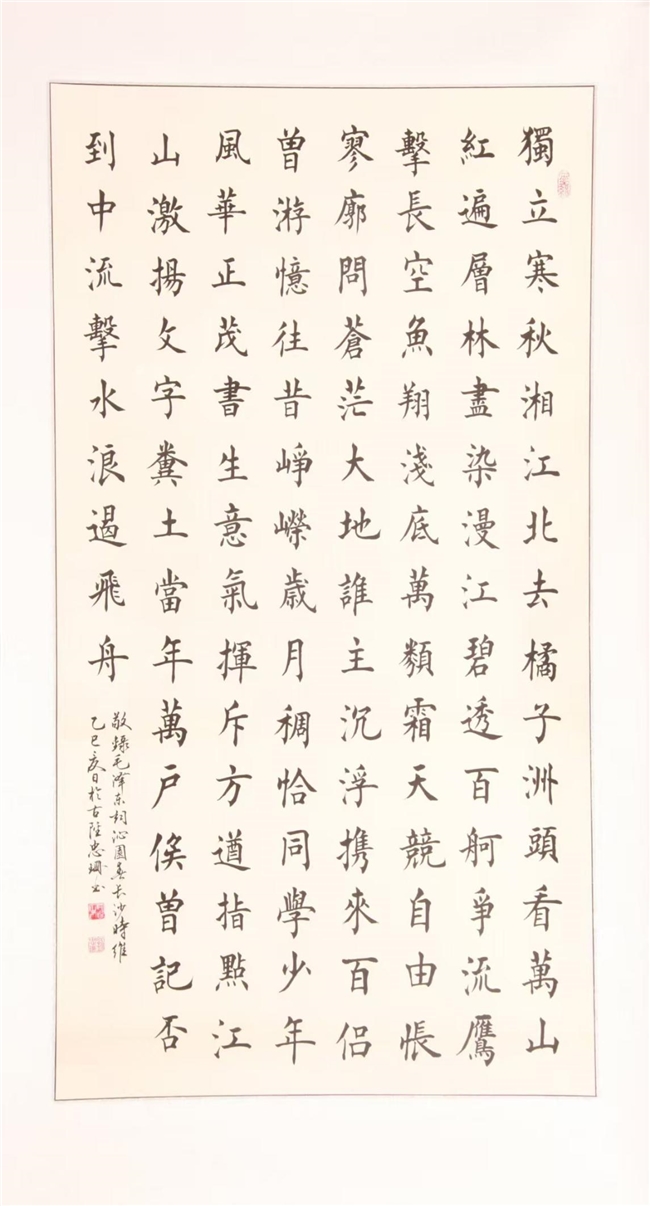 獨立寒秋湘江北去橘子洲頭看萬山
紅遍層林盡染漫江碧透百舸爭流鷹
擊長空魚翔淺底萬纇霜天競自由帳
寥廓問蒼茫大地誰主沉浮携來百侣
曾游憶往昔崢嶸歲月稠恰同學少年
風華正茂書生意氣揮斥方遒指點江
山激揚文字糞土當年萬户侯曾記否
到中流擊水浪遏飛舟
敬錄毛澤东詞沁園春长沙時維
乙巳夏日於古陸忠書